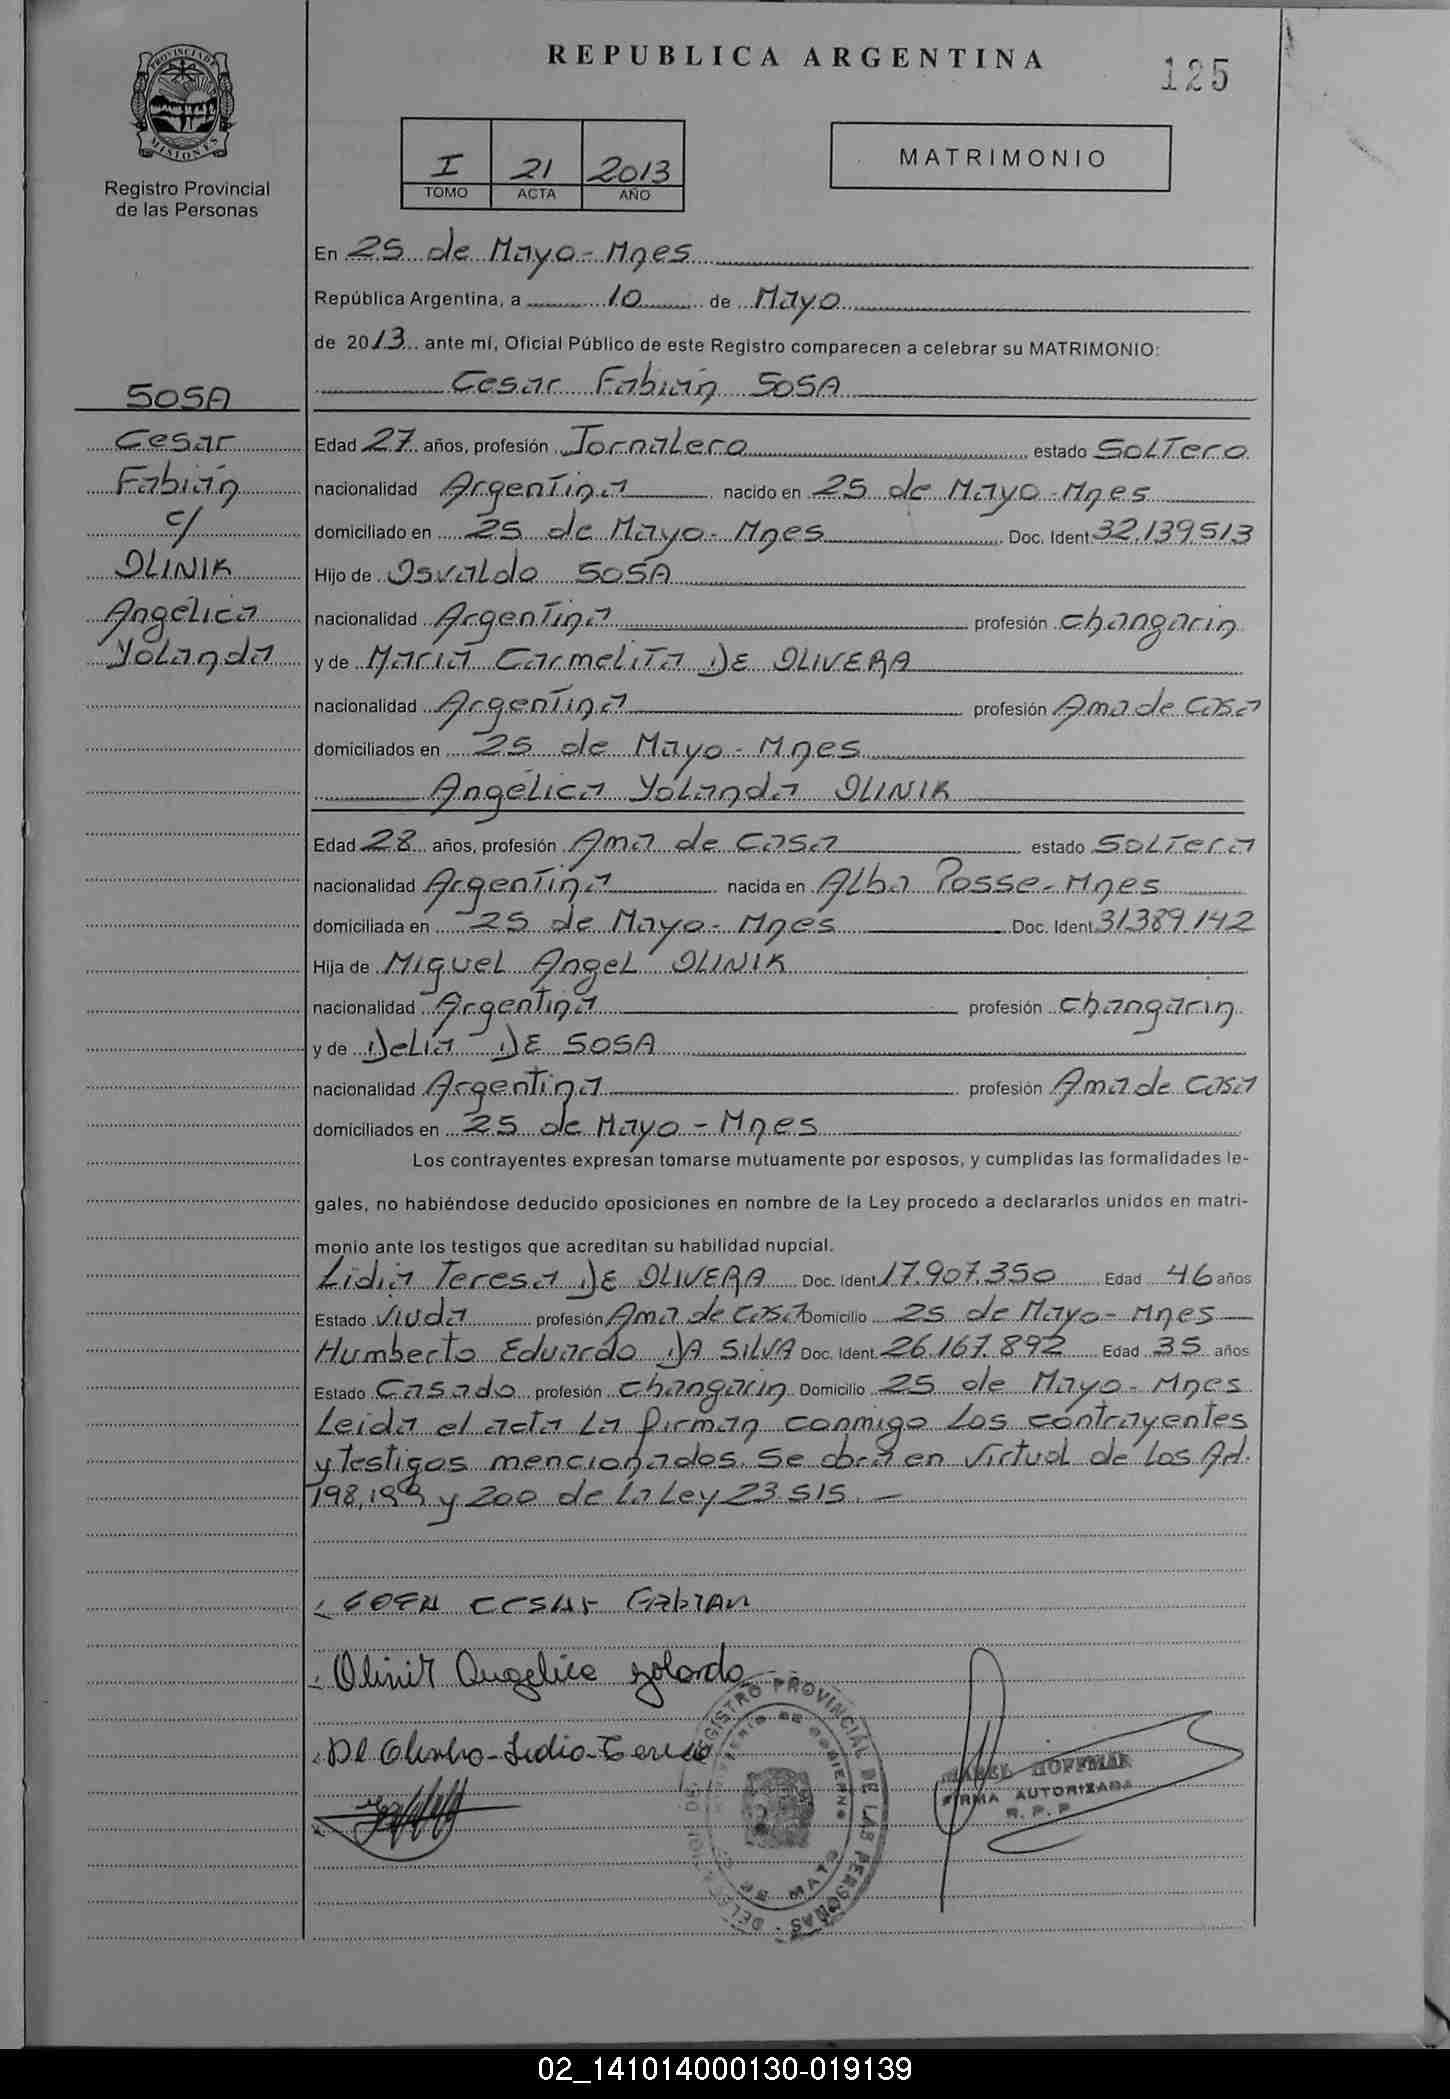 REPUBLICA ARGENTINA
125
PROVINCIA DE
MISIONES
Registro Provincial
de las Personas
I 21 2013
TOMO ACTA AÑO
MATRIMONIO
En 25 de Mayo - Mnes
República Argentina, a 10 de Mayo
de 2013 ante mí, Oficial Público de este Registro comparecen a celebrar su MATRIMONIO:
Cesar Fabián SOSA
SOSA
Cesar
Fabián
c/
OLINIK
Angélica
Yolanda
Edad 27 años, profesión Jornalero estado Soltero
nacionalidad Argentina nacido en 25 de Mayo - Mnes
domiciliado en 25 de Mayo - Mnes Doc. Ident 32.139.513
Hijo de Osvaldo SOSA
nacionalidad Argentina profesión changarin
y de María Carmelita DE OLIVERA
nacionalidad Argentina profesión Ama de Casa
domiciliados en 25 de Mayo - Mnes
Angélica Yolanda OLINIK
Edad 28 años, profesión Ama de Casa estado Soltera
nacionalidad Argentina nacida en Alba Posse - Mnes
domiciliada en 25 de Mayo - Mnes Doc. Ident. 31.389.142
Hija de Miguel Angel OLINIK
nacionalidad Argentina profesión changarin
y de Delia DE SOSA
nacionalidad Argentina profesión Ama de Casa
domiciliados en 25 de Mayo - Mnes
Los contrayentes expresan tomarse mutuamente por esposos, y cumplidas las formalidades le-
gales, no habiéndose deducido oposiciones en nombre de la Ley procedo a declararlos unidos en matri-
monio ante los testigos que acreditan su habilidad nupcial.
Lidia Teresa DE OLIVERA Doc. Ident. 17.907.350 Edad 46 años
Estado Viuda profesión Ama de Casa Domicilio 25 de Mayo - Mnes
Humberto Eduardo DA SILVA Doc. Ident. 26.167.892 Edad 35 años
Estado Casado profesión changarin Domicilio 25 de Mayo - Mnes
Leida el acta la firman conmigo los contrayentes
y testigos mencionados. Se obra en virtud de los Art.
198, 199 y 200 de la Ley 23.515.-
SOSA CESAR FABIAN
Olinik Angelica Yolanda
De Olivera - Lidia - Teresa
REGISTRO PROVINCIAL DE LAS PERSONAS
HOFFMAN
FIRMA AUTORIZADA
R. P. P.
02_141014000130-019139